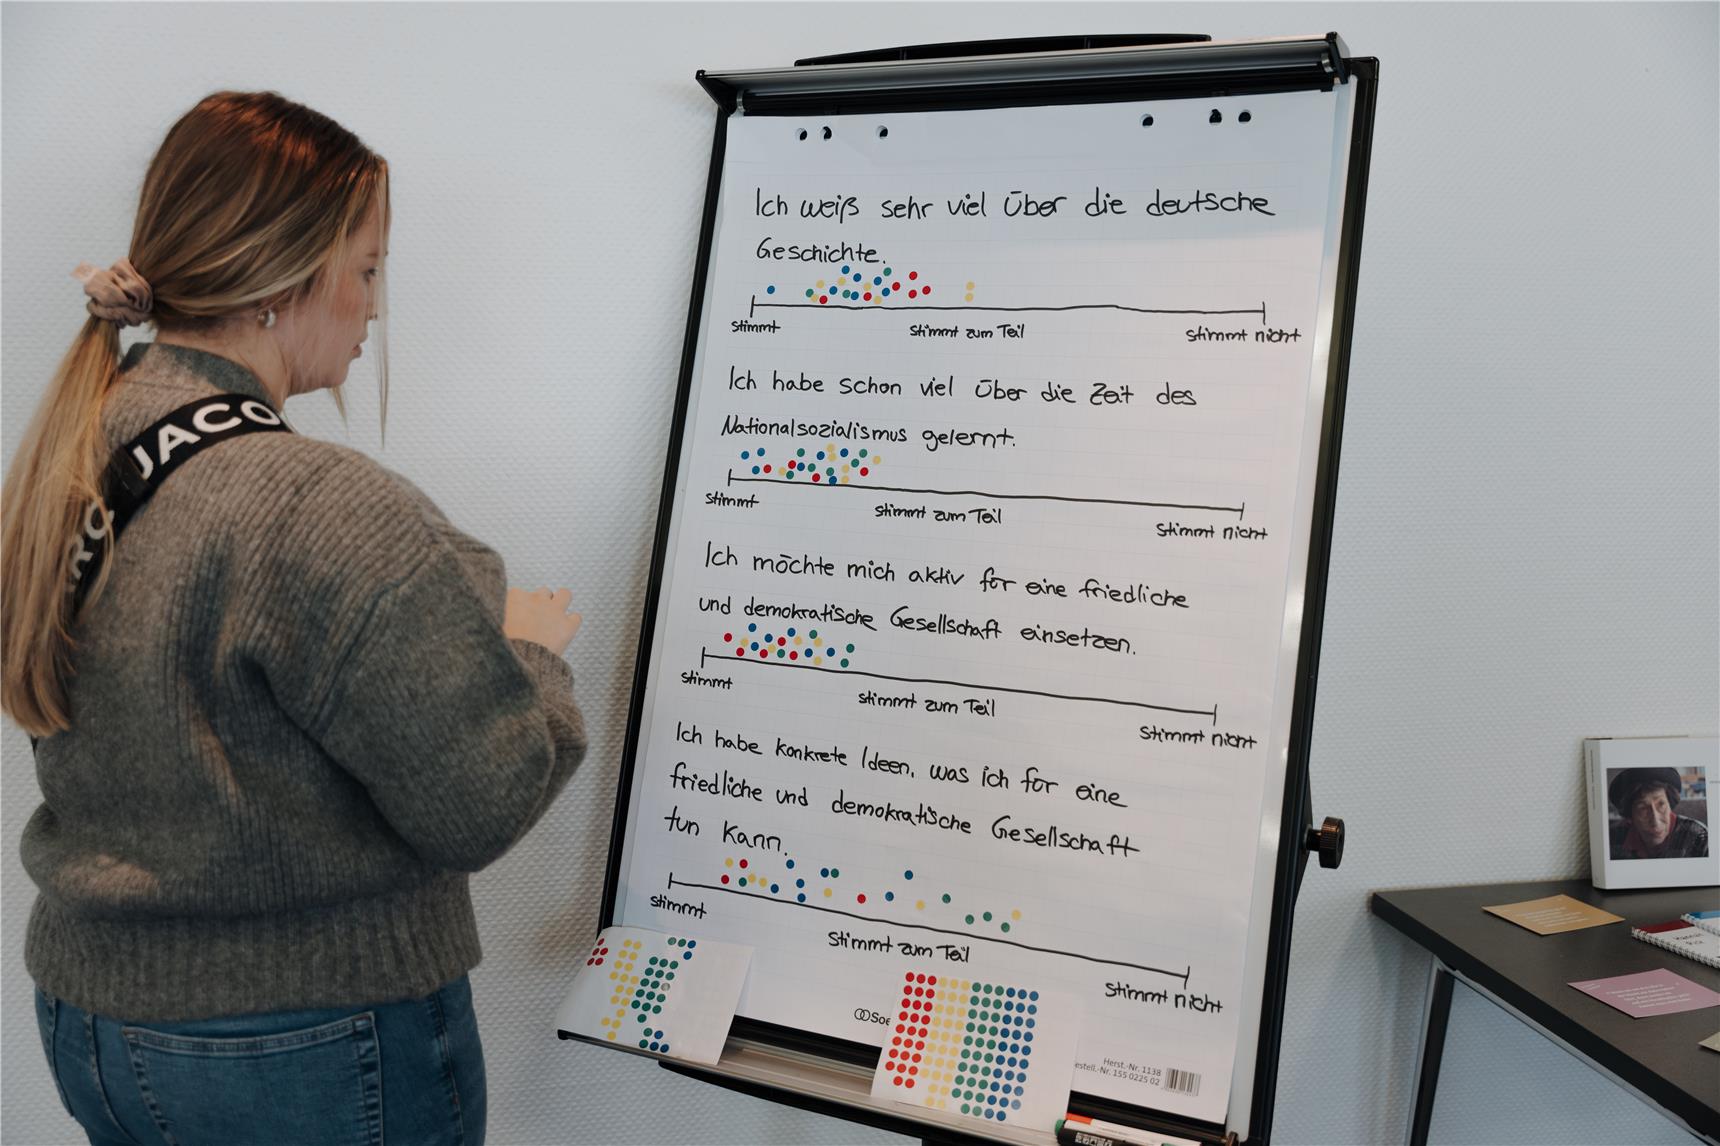 MARC JACO
Ich weiß sehr viel über die deutsche
Geschichte.
stimmt
stimmt zum Teil
stimmt nicht
Ich habe schon viel über die Zeit des
Nationalsozialismus gelernt.
stimmt
stimmt zum Teil
stimmt nicht
Ich möchte mich aktiv für eine friedliche
und demokratische Gesellschaft einsetzen.
stimmt
stimmt zum Teil
stimmt nicht
Ich habe konkrete Ideen, was ich für eine
friedliche und demokratische Gesellschaft
tun kann.
stimmt
stimmt zum Teil
stimmt nicht
Soe
Herst.-Nr. 1138
estell.-Nr. 155 0225 02